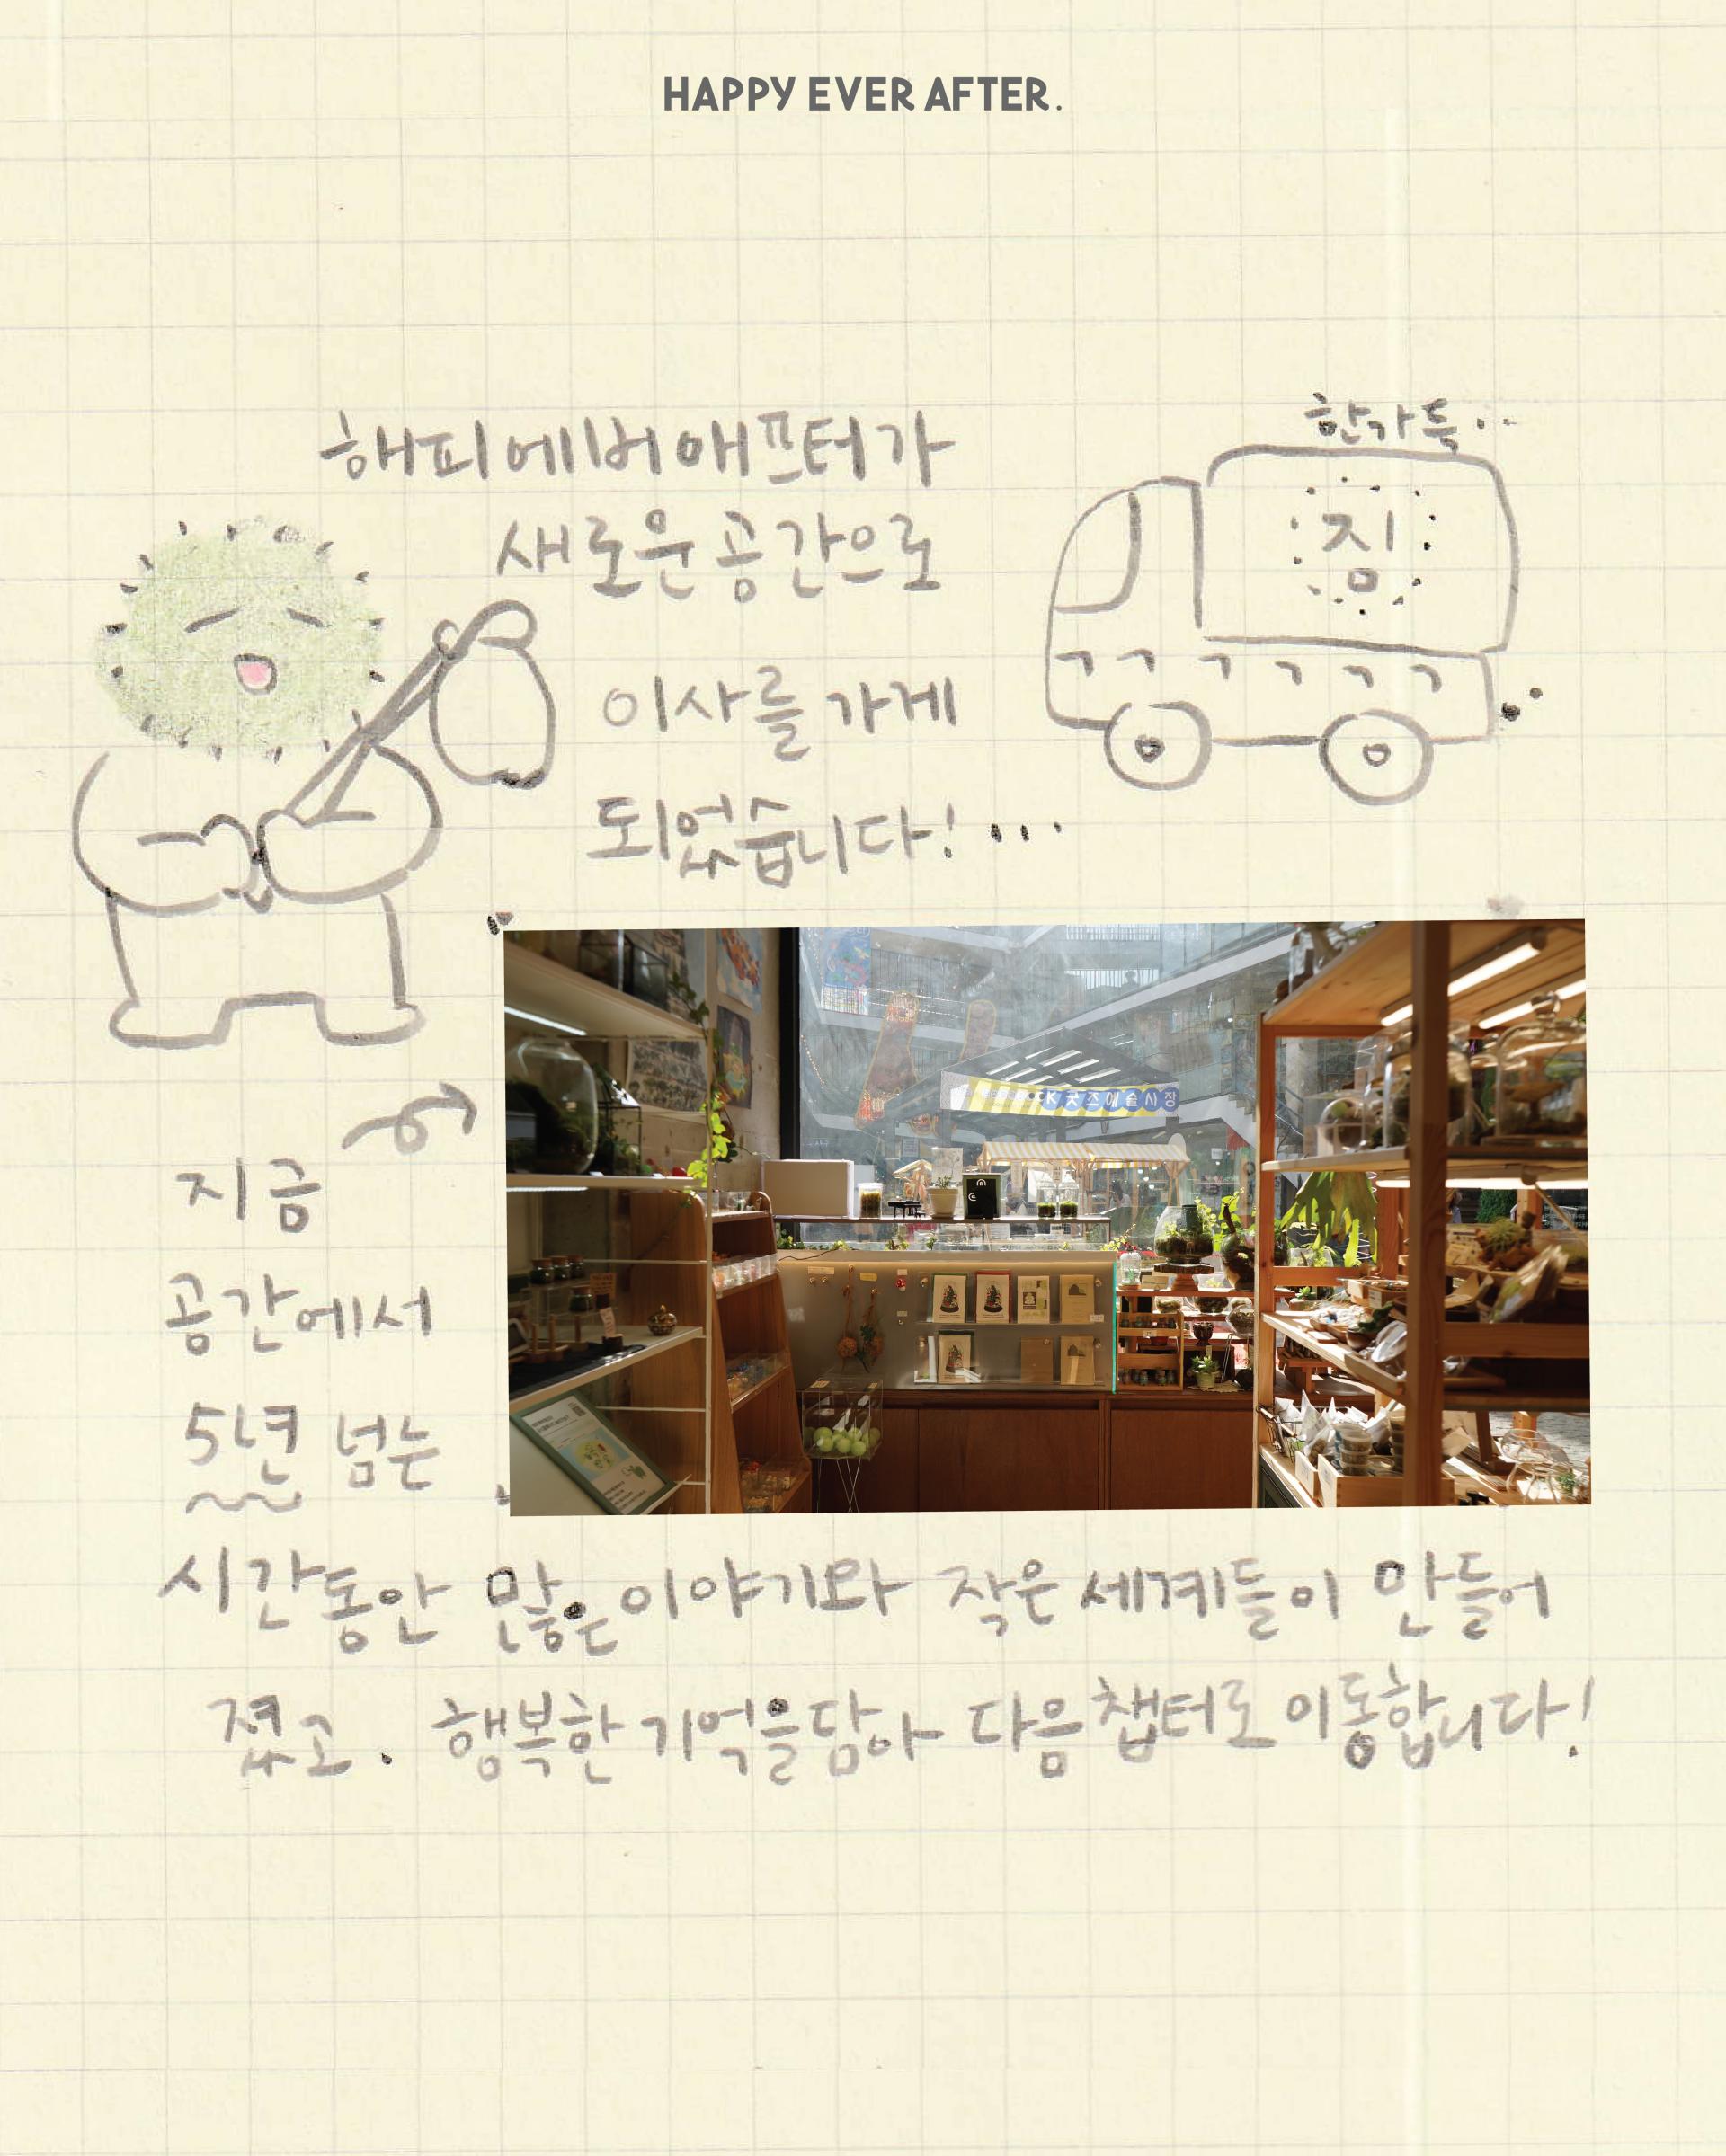 HAPPY EVER AFTER.
해피에버애프터가
새로운 공간으로
이사를 가게
되었습니다! ...
한가득..
짐
굿즈예술시장
지금
공간에서
5년 넘는
시간동안 많은 이야기와 작은 세계들이 만들어
졌고. 행복한 기억을 담아 다음 챕터로 이동합니다!